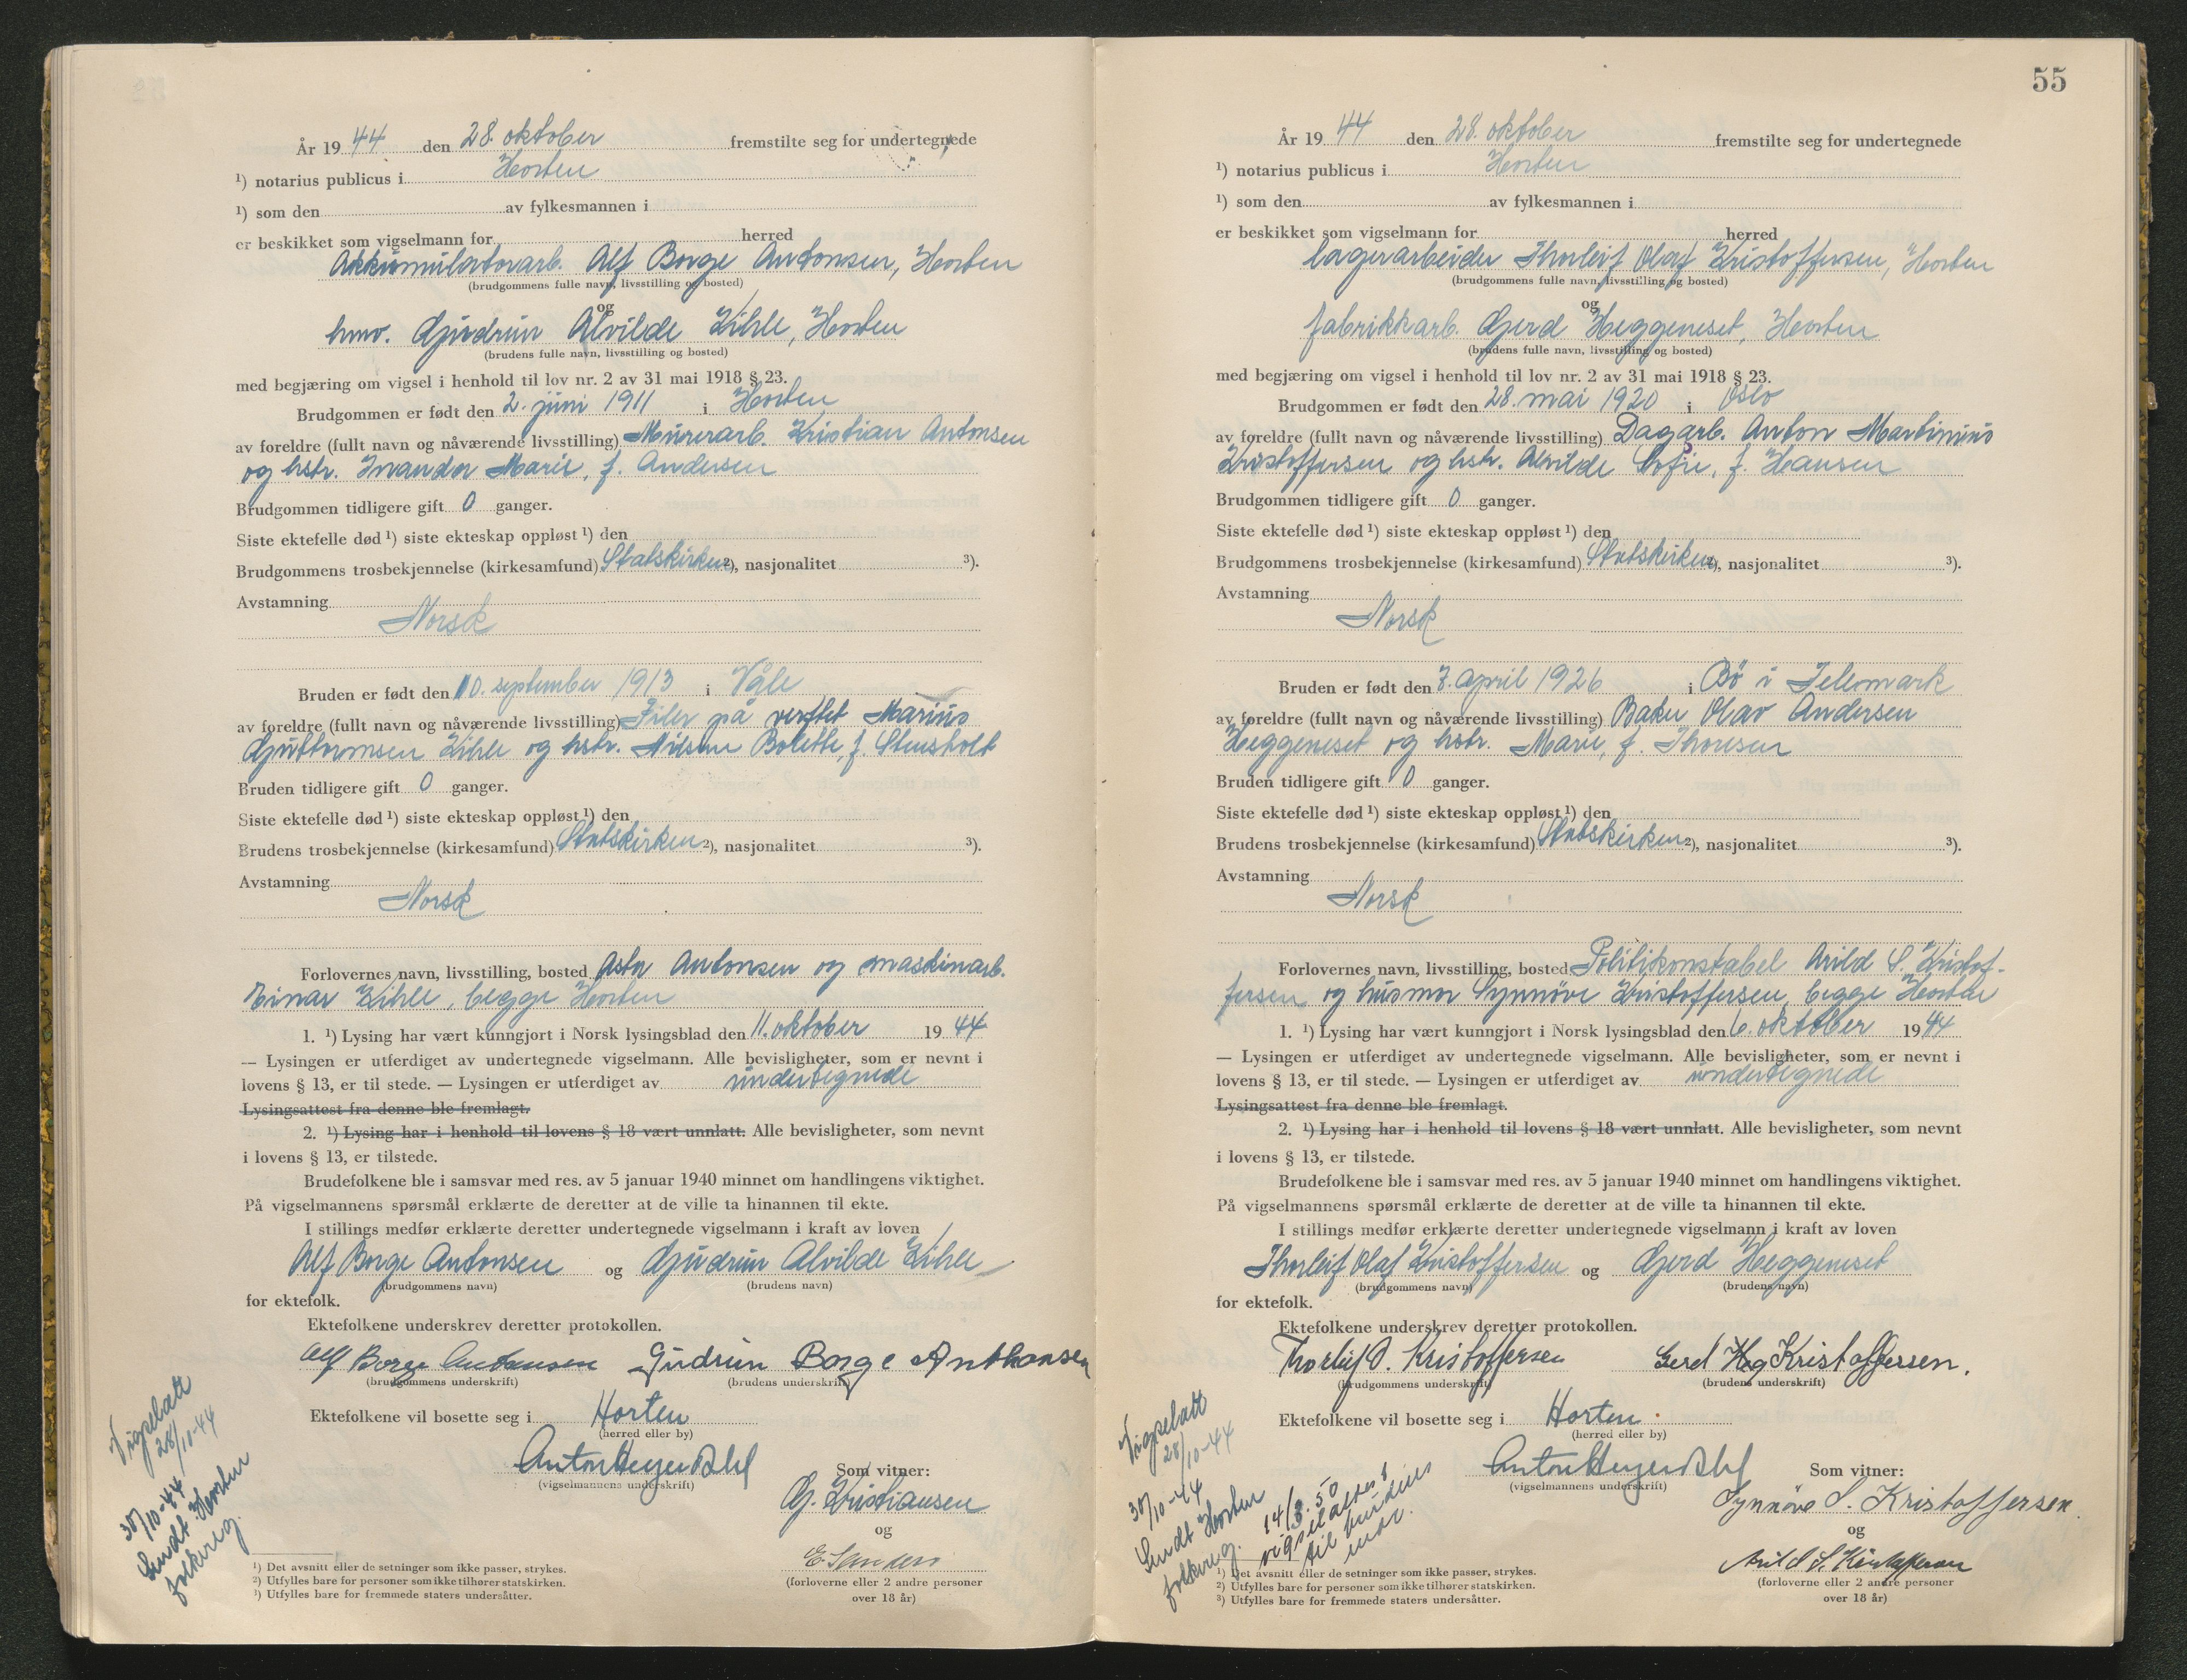 År 19 44 den 28. oktober fremstilte seg for undertegnede
¹) notarius publicus i Horten
¹) som den av fylkesmannen i
er beskikket som vigselmann for herred
Akkumulatorarb. Alf Borge Antonsen, Horten
(brudgommens fulle navn, livsstilling og bosted)
og
hmv. Gjudrun Alvilde Kihle, Horten
(brudens fulle navn, livsstilling og bosted)
med begjæring om vigsel i henhold til lov nr. 2 av 31 mai 1918 § 23.
Brudgommen er født den 2. juni 1911 i Horten
av foreldre (fullt navn og nåværende livsstilling) Murerarb. Kristian Antonsen
og hstr. Marie, f. Andersen
Brudgommen tidligere gift 0 ganger.
Siste ektefelle død ¹) siste ekteskap oppløst ¹) den
Brudgommens trosbekjennelse (kirkesamfund) Statskirken ²), nasjonalitet ³).
Avstamning
Norsk
Bruden er født den 10. september 1913 i Våle
av foreldre (fullt navn og nåværende livsstilling) Filer på verftet Marius
Guttormsen Kihle og hstr. Bolette, f. Stensholt
Bruden tidligere gift 0 ganger.
Siste ektefelle død ¹) siste ekteskap oppløst ¹) den
Brudens trosbekjennelse (kirkesamfund) Statskirken ²), nasjonalitet ³).
Avstamning
Norsk
Forlovernes navn, livsstilling, bosted Asta Antonsen og maskinarb.
Einar Kihle, begge Horten
1. ¹) Lysing har vært kunngjort i Norsk lysingsblad den 11. oktober 19 44
— Lysingen er utferdiget av undertegnede vigselmann. Alle bevisligheter, som er nevnt i
lovens § 13, er til stede. — Lysingen er utferdiget av undertegnede
Lysingsattest fra denne ble fremlagt.
2. ¹) Lysing har i henhold til lovens § 18 vært unnlatt. Alle bevisligheter, som nevnt
i lovens § 13, er tilstede.
Brudefolkene ble i samsvar med res. av 5 januar 1940 minnet om handlingens viktighet.
På vigselmannens spørsmål erklærte de deretter at de ville ta hinannen til ekte.
I stillings medfør erklærte deretter undertegnede vigselmann i kraft av loven
Alf Borge Antonsen og Gjudrun Alvilde Kihle
(brudgommens navn) (brudens navn)
for ektefolk.
Ektefolkene underskrev deretter protokollen.
Alf Borge Gudrun Borge Anthonsen
(brudgommens underskrift) (brudens underskrift)
Ektefolkene vil bosette seg i Horten
(herred eller by)
Anton
(vigselmannens underskrift)
Som vitner:
G. Kristiansen
og
E.
(forloverne eller 2 andre personer
over 18 år)
Vigselatt
28/10-44
30/10-44
Sendt Horten
folkereg.
¹) Det avsnitt eller de setninger som ikke passer, strykes.
²) Utfylles bare for personer som ikke tilhører statskirken.
³) Utfylles bare for fremmede staters undersåtter.
55
År 19 44 den 28. oktober fremstilte seg for undertegnede
¹) notarius publicus i Horten
¹) som den av fylkesmannen i
er beskikket som vigselmann for herred
lagerarbeider Thorleif Olaf Kristoffersen, Horten
(brudgommens fulle navn, livsstilling og bosted)
og
fabrikkarb. Gjerd Heggeneset, Horten
(brudens fulle navn, livsstilling og bosted)
med begjæring om vigsel i henhold til lov nr. 2 av 31 mai 1918 § 23.
Brudgommen er født den 28. mai 1920 i Oslo
av foreldre (fullt navn og nåværende livsstilling) Dagarb. Anton Martinius
Kristoffersen og hstr. Alvilde Sofie, f. Hansen
Brudgommen tidligere gift 0 ganger.
Siste ektefelle død ¹) siste ekteskap oppløst ¹) den
Brudgommens trosbekjennelse (kirkesamfund) Statskirken ²), nasjonalitet ³).
Avstamning
Norsk
Bruden er født den 7. april 1926 i Bö i Telemark
av foreldre (fullt navn og nåværende livsstilling) Baker Olav Andersen
Heggeneset og hstr. Marie, f. Thoresen
Bruden tidligere gift 0 ganger.
Siste ektefelle død ¹) siste ekteskap oppløst ¹) den
Brudens trosbekjennelse (kirkesamfund) Statskirken ²), nasjonalitet ³).
Avstamning
Norsk
Forlovernes navn, livsstilling, bosted Politikonstabel Arild S. Kristof-
fersen og husmor Synnöve Kristoffersen, begge Horten
1. ¹) Lysing har vært kunngjort i Norsk lysingsblad den 6. oktober 19 44
— Lysingen er utferdiget av undertegnede vigselmann. Alle bevisligheter, som er nevnt i
lovens § 13, er til stede. — Lysingen er utferdiget av undertegnede
Lysingsattest fra denne ble fremlagt.
2. ¹) Lysing har i henhold til lovens § 18 vært unnlatt. Alle bevisligheter, som nevnt
i lovens § 13, er tilstede.
Brudefolkene ble i samsvar med res. av 5 januar 1940 minnet om handlingens viktighet.
På vigselmannens spørsmål erklærte de deretter at de ville ta hinannen til ekte.
I stillings medfør erklærte deretter undertegnede vigselmann i kraft av loven
Thorleif Olaf Kristoffersen og Gjerd Heggeneset
(brudgommens navn) (brudens navn)
for ektefolk.
Ektefolkene underskrev deretter protokollen.
Thorleif O. Kristoffersen Gerd Heg Kristoffersen.
(brudgommens underskrift) (brudens underskrift)
Ektefolkene vil bosette seg i Horten.
(herred eller by)
Anton
(vigselmannens underskrift)
Som vitner:
Synnöve S. Kristoffersen.
og
Arild S Kristoffersen
(forloverne eller 2 andre personer
over 18 år)
Vigselatt
28/10-44
30/10-44
Sendt Horten
folkereg.
14/3.50
vigselattest
til brudens
mor.
¹) Det avsnitt eller de setninger som ikke passer, strykes.
²) Utfylles bare for personer som ikke tilhører statskirken.
³) Utfylles bare for fremmede staters undersåtter.